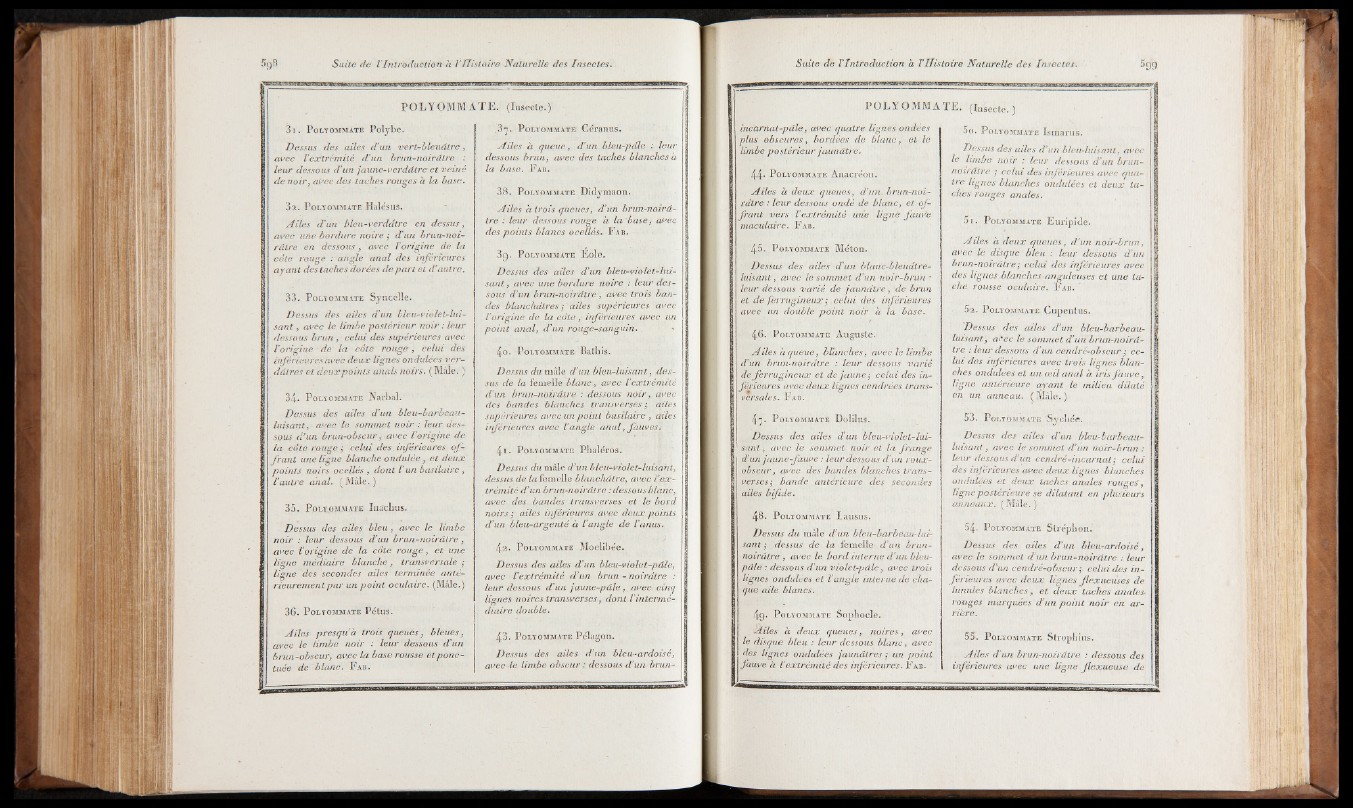 598 Suite de l'Introduction à l'Histoire Naturelle des Insectes.
POLYOMMATE. (Insecte.)
31. POLYOMMATE Polybe.
Dessus des ailes d'un vert-bleuâtre,
avec l'extrémité d'un brun-noirâtre :
leur dessous d'un jaune-verdâtre et veiné
de noir, avec des taches rouges à la base.
32. POLYOMMATE Halésus.
Ailes d'un bleu-verdâtre en dessus,
avec une bordure noire ; d'un brun-noi-
râtre en dessous, avec l'origine de la
côte rouge : angle anal des inférieures
ayant des taches dorées de part et d'autre.
33. POLYOMMATE Syncelle.
Dessus des ailes d'un bleu-violet-lui-
sant, avec le limbe postérieur noir : leur
dessous brun, celui des supérieures avec
l'origine de la côte rouge, celui des
inférieures avec deux lignes ondulées ver-
dâtres et deux points anals noirs. (Mâle.)
34. POLYOMMATE Narbal.
Dessus des ailes d'un bleu-barbeau-
luisant, avec le sommet noir : leur des-
sous d'un brun-obscur, avec l'origine de
la côte rouge ; celui des inférieures of-
frant une ligne blanche ondulée, et deux
points noirs ocellés, dont l'un basilaire,
l'autre anal. (Mâle.)
35. POLYOMMATE Inachus.
Dessus des ailes bleu, avec le limbe
noir : leur dessous d'un brun-noirâtre,
avec l'origine de la côte rouge, et une
ligne médiaire blanche, transversale ;
ligne des secondes ailes terminée anté-
rieurement par un point oculaire. (Mâle.)
36. POLYOMMATE Pétus.
Ailes presqu'à trois queues, bleues,
avec le limbe noir : leur dessous d'un
brun-obscur, avec la base rousse et ponc-
tuée de blanc. FAB.
37. POLYOMMATE Céranus.
Ailes à queue, d'un bleu-pâle : leur
dessous brun, avec des taches blanches à
la base. FAB.
38. POLYOMMATE Didymaon.
Ailes à trois queues, d'un brun-noirâ-
tre : leur dessous rouge à la base, avec
des points blancs ocellés. FAB.
39. POLYOMMATE Éole.
Dessus des ailes d'un bleu-violet-lui-
sant, avec une bordure noire : leur des-
sous d'un brun-noirâtre, avec trois ban-
des blanchâtres ; ailes supérieures avec
l'origine de la côte, inférieures avec un
point anal, d'un rouge-sanguin.
40. POLYOMMATE Bathis.
Dessus du mâle d'un bleu-luisant, des-
sus de la femelle blanc, avec l'extrémité
d'un brun-noirâtre : dessous noir, avec
des bandes blanches transverses ; ailes
supérieures avec un point basilaire, ailes
inférieures avec l'angle anal, fauves.
41. POLYOMMATE Phaléros.
Dessus du mâle d'un bleu-violet-luisant,
dessus de la femelle blanchâtre, avec l'ex-
trémité d'un brun-noirâtre : dessous blanc,
avec des bandes transverses et le bord
noirs ; ailes inférieures avec deux points
d'un bleu-argenté à l'angle de l'anus.
42. POLYOMMATE Moelibée.
Dessus des ailes d'un bleu-violet-pâle,
avec l'extrémité d'un brun-noirâtre :
leur dessous d'un jaune-pâle, avec cinq
lignes noires transverses, dont l'intermé-
diaire double.
43. POLYOMMATE Pélagon.
Dessus des ailes d'un bleu-ardoisé,
avec le limbe obscur : dessous d'un brun-
Suite de l'Introduction à l'Histoire Naturelle des Insectes. 599
POLYOMMATE. (Insecte.)
incarnat-pâle, avec quatre lignes ondées
plus obscures, bordées de blanc, et le
limbe postérieur jaunâtre.
44. POLYOMMATE Anacréon.
Ailes à deux queues, d'un brun-noi-
râtre : leur dessous ondé de blanc, et of-
frant vers l'extrémité une ligne fauve
maculaire. FAB.
45. POLYOMMATE Méton.
Dessus des ailes d'un blanc-bleuâtre-
luisant, avec le sommet d'un noir-brun :
leur dessous varié de jaunâtre, de brun
et de ferrugineux ; celui des inférieures
avec un double point noir à la base.
46. POLYOMMATE Auguste.
Ailes à queue, blanches, avec le limbe
d'un brun-noirâtre : leur dessous varié
de ferrugineux et de jaune ; celui des in-
férieures avec deux lignes cendrées trans-
versales. FAB.
47. POLYOMMATE Dolilus.
Dessus des ailes d'un bleu-violet-lui-
sant, avec le sommet noir et la frange
d'un jaune-fauve : leur dessous d'un roux-
obscur, avec des bandes blanches trans-
verses ; bande antérieure des secondes
ailes bifide.
48. POLYOMMATE Lausus.
Dessus du mâle d'un bleu-barbeau-lui-
sant ; dessus de la femelle d'un brun-
noirâtre, avec le bord interne d'un bleu-
pâle : dessous d'un violet-pâle, avec trois
lignes ondulées et l'angle interne de cha-
que aile blancs.
49. POLYOMMATE Sophocle.
Ailes à deux queues, noires, avec
le disque bleu : leur dessous blanc, avec
des lignes ondulées jaunâtres ; un point
fauve à l'extrémité des inférieures. FAB.
50. POLYOMMATE Ismarus.
Dessus des ailes d'un bleu-luisant, avec
le limbe noir : leur dessous d'un brun-
noirâtre ; celui des inférieures avec qua-
tre lignes blanches ondulées et deux ta-
ches rouges anales.
51. POLYOMMATE Euripide.
Ailes à deux queues, d'un noir-brun,
avec le disque bleu : leur dessous d'un
brun-noirâtre ; celui des inférieures avec
des lignes blanches anguleuses et une ta-
che rousse oculaire. FAB.
52. POLYOMMATE Cupentus.
Dessus des ailes d'un bleu-barbeau-
luisant, avec le sommet d'un brun-noirâ-
tre : leur dessous d'un cendré-obscur ; ce-
lui des inférieures avec trois lignes blan-
ches ondulées et un œil anal à iris fauve,
ligne antérieure ayant le milieu dilaté
en un anneau. (Mâle.)
53. POLYOMMATE Sychée.
Dessus des ailes d'un bleu-barbeau-
luisant, avec le sommet d'un noir-brun :
leur dessous d'un cendré-incarnat ; celui
des inférieures avec deux lignes blanches
ondulées et deux taches anales rouges,
ligne postérieure se dilatant en plusieurs
anneaux. (Mâle.)
54. POLYOMMATE Stréphon.
Dessus des ailes d'un bleu-ardoisé,
avec le sommet d'un brun-noirâtre : leur
dessous d'un cendré-obscur ; celui des in-
férieures avec deux lignes flexueuses de
lunules blanches, et deux taches anales
rouges marquées d'un point noir en ar-
rière.
55. POLYOMMATE Strophius.
Ailes d'un brun-noirâtre : dessous des
inférieures avec une ligne flexueuse de